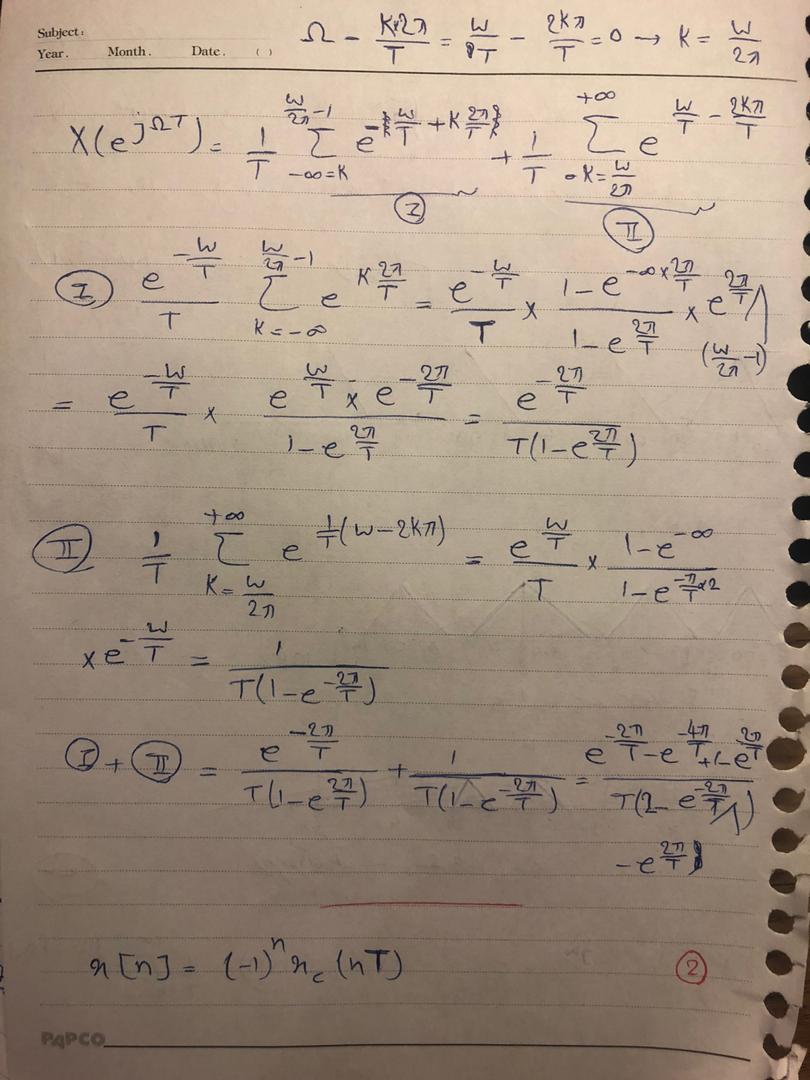 Subject:
Year. Month. Date. ( )
Ω - K×2π/T = w/T - 2kπ/T = 0 → K = w/2π
X(e^{jΩT}) = 1/T Σ_{-∞=K}^{w/2π -1} e^{-{w/T + K 2π/T}} + 1/T Σ_{K=w/2π}^{+∞} e^{w/T - 2kπ/T}
I II
I e^{-w/T}/T Σ_{K=-∞}^{w/2π -1} e^{K 2π/T} = e^{-w/T}/T × (1-e^{-∞×2π/T})/(1-e^{2π/T}) × e^{2π/T (w/2π -1)}
= e^{-w/T}/T × (e^{w/T} × e^{-2π/T})/(1-e^{2π/T}) = e^{-2π/T}/(T(1-e^{2π/T}))
II 1/T Σ_{K=w/2π}^{+∞} e^{1/T(w-2kπ)} = e^{w/T}/T × (1-e^{-∞})/(1-e^{-π/T ×2})
×e^{-w/T} = 1/(T(1-e^{-2π/T}))
I + II = e^{-2π/T}/(T(1-e^{2π/T})) + 1/(T(1-e^{-2π/T})) = (e^{-2π/T} - e^{-4π/T} + 1 - e^{2π/T})/(T(2 - e^{-2π/T} - e^{2π/T}))
x[n] = (-1)^n x_c(nT) 2
PAPCO